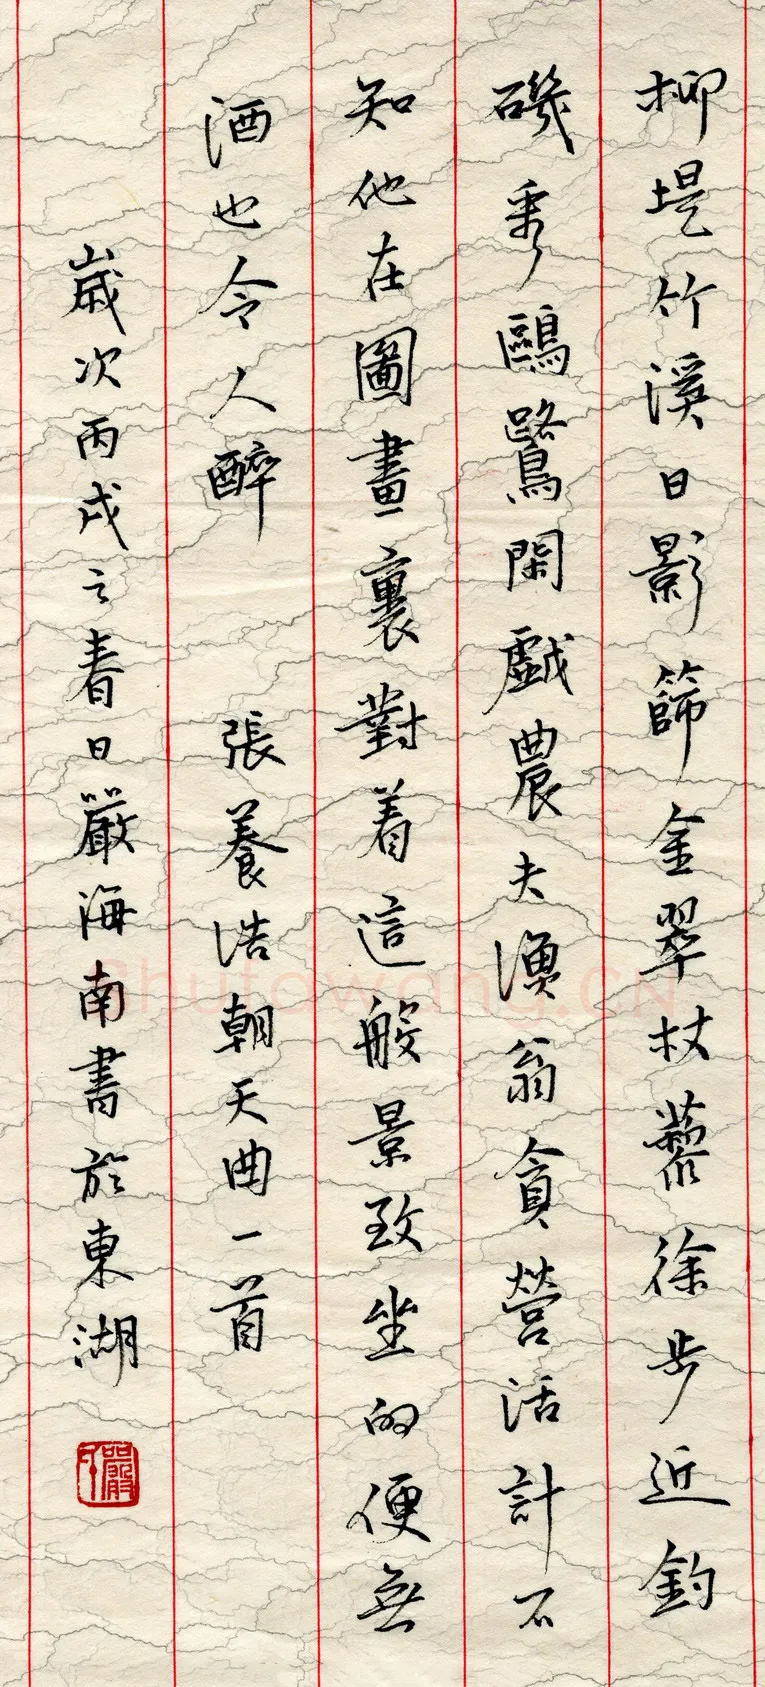 柳堤竹溪日影篩金翠杖藜徐步近釣
磯看鷗鷺閑戲農夫漁翁貪營活計不
知他在圖畫裏對着這般景致坐的便無
酒也令人醉 張養浩朝天曲一首
歲次丙戌之春日嚴海南書於東湖
Shufawang.CN